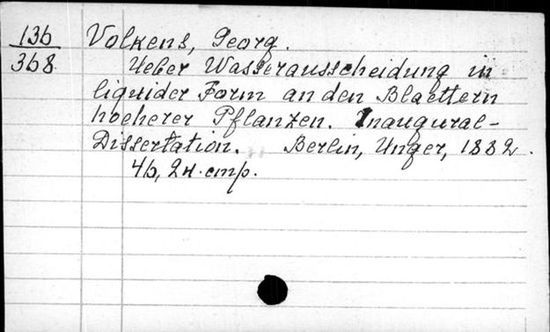 136 Volkens, Georg.
368 Ueber Wasserausscheidung in
liquider Form an den Blaettern
hoeherer Pflanzen. Inaugural-
Dissertation. Berlin, Unger, 1882.
46, 2 н. стр.